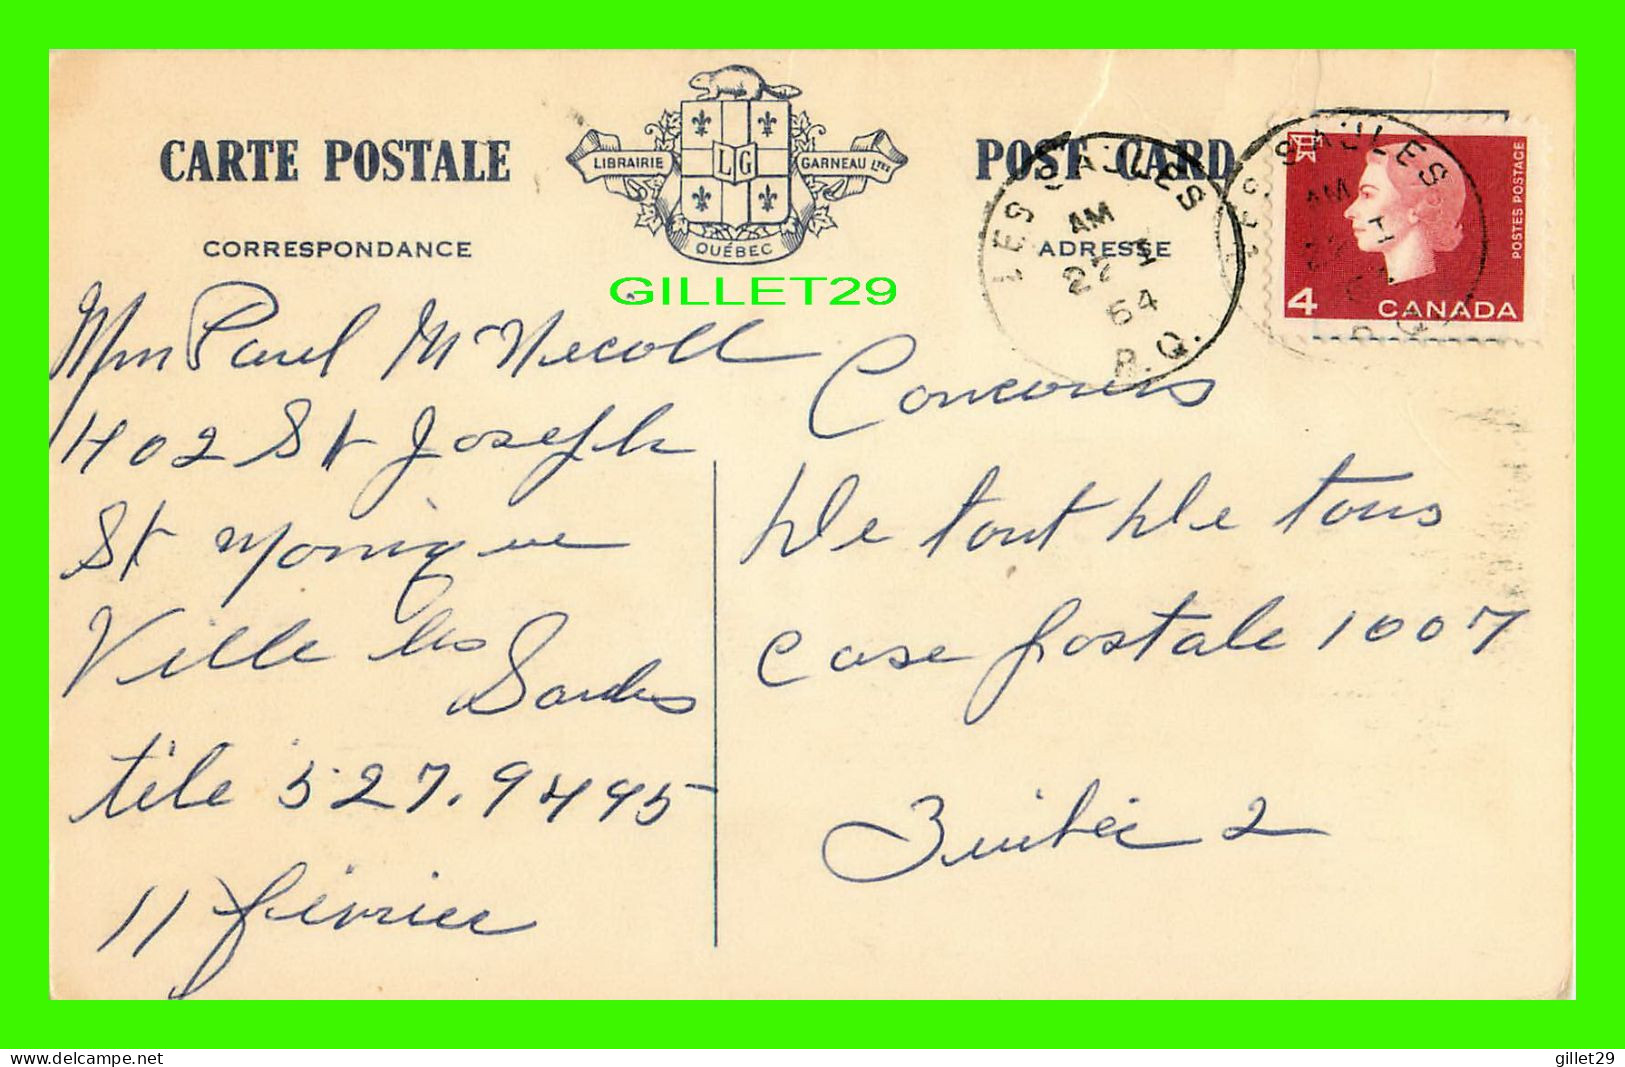 CARTE POSTALE
CORRESPONDANCE
LIBRAIRIE LG GARNEAU LTÉE
QUÉBEC
POST CARD
ADRESSE
LES SAULES
AM
22 I
64
P.Q.
LES SAULES
AM
P.Q.
POSTES POSTAGE
4 CANADA
GILLET29
Mm Paul McNecoll
1402 St Joseph
St Monique
Ville les
Saules
télé 527.9495
11 février
Concours
De tout De tous
Case postale 1007
Québéc 2
www.delcampe.net
gillet29